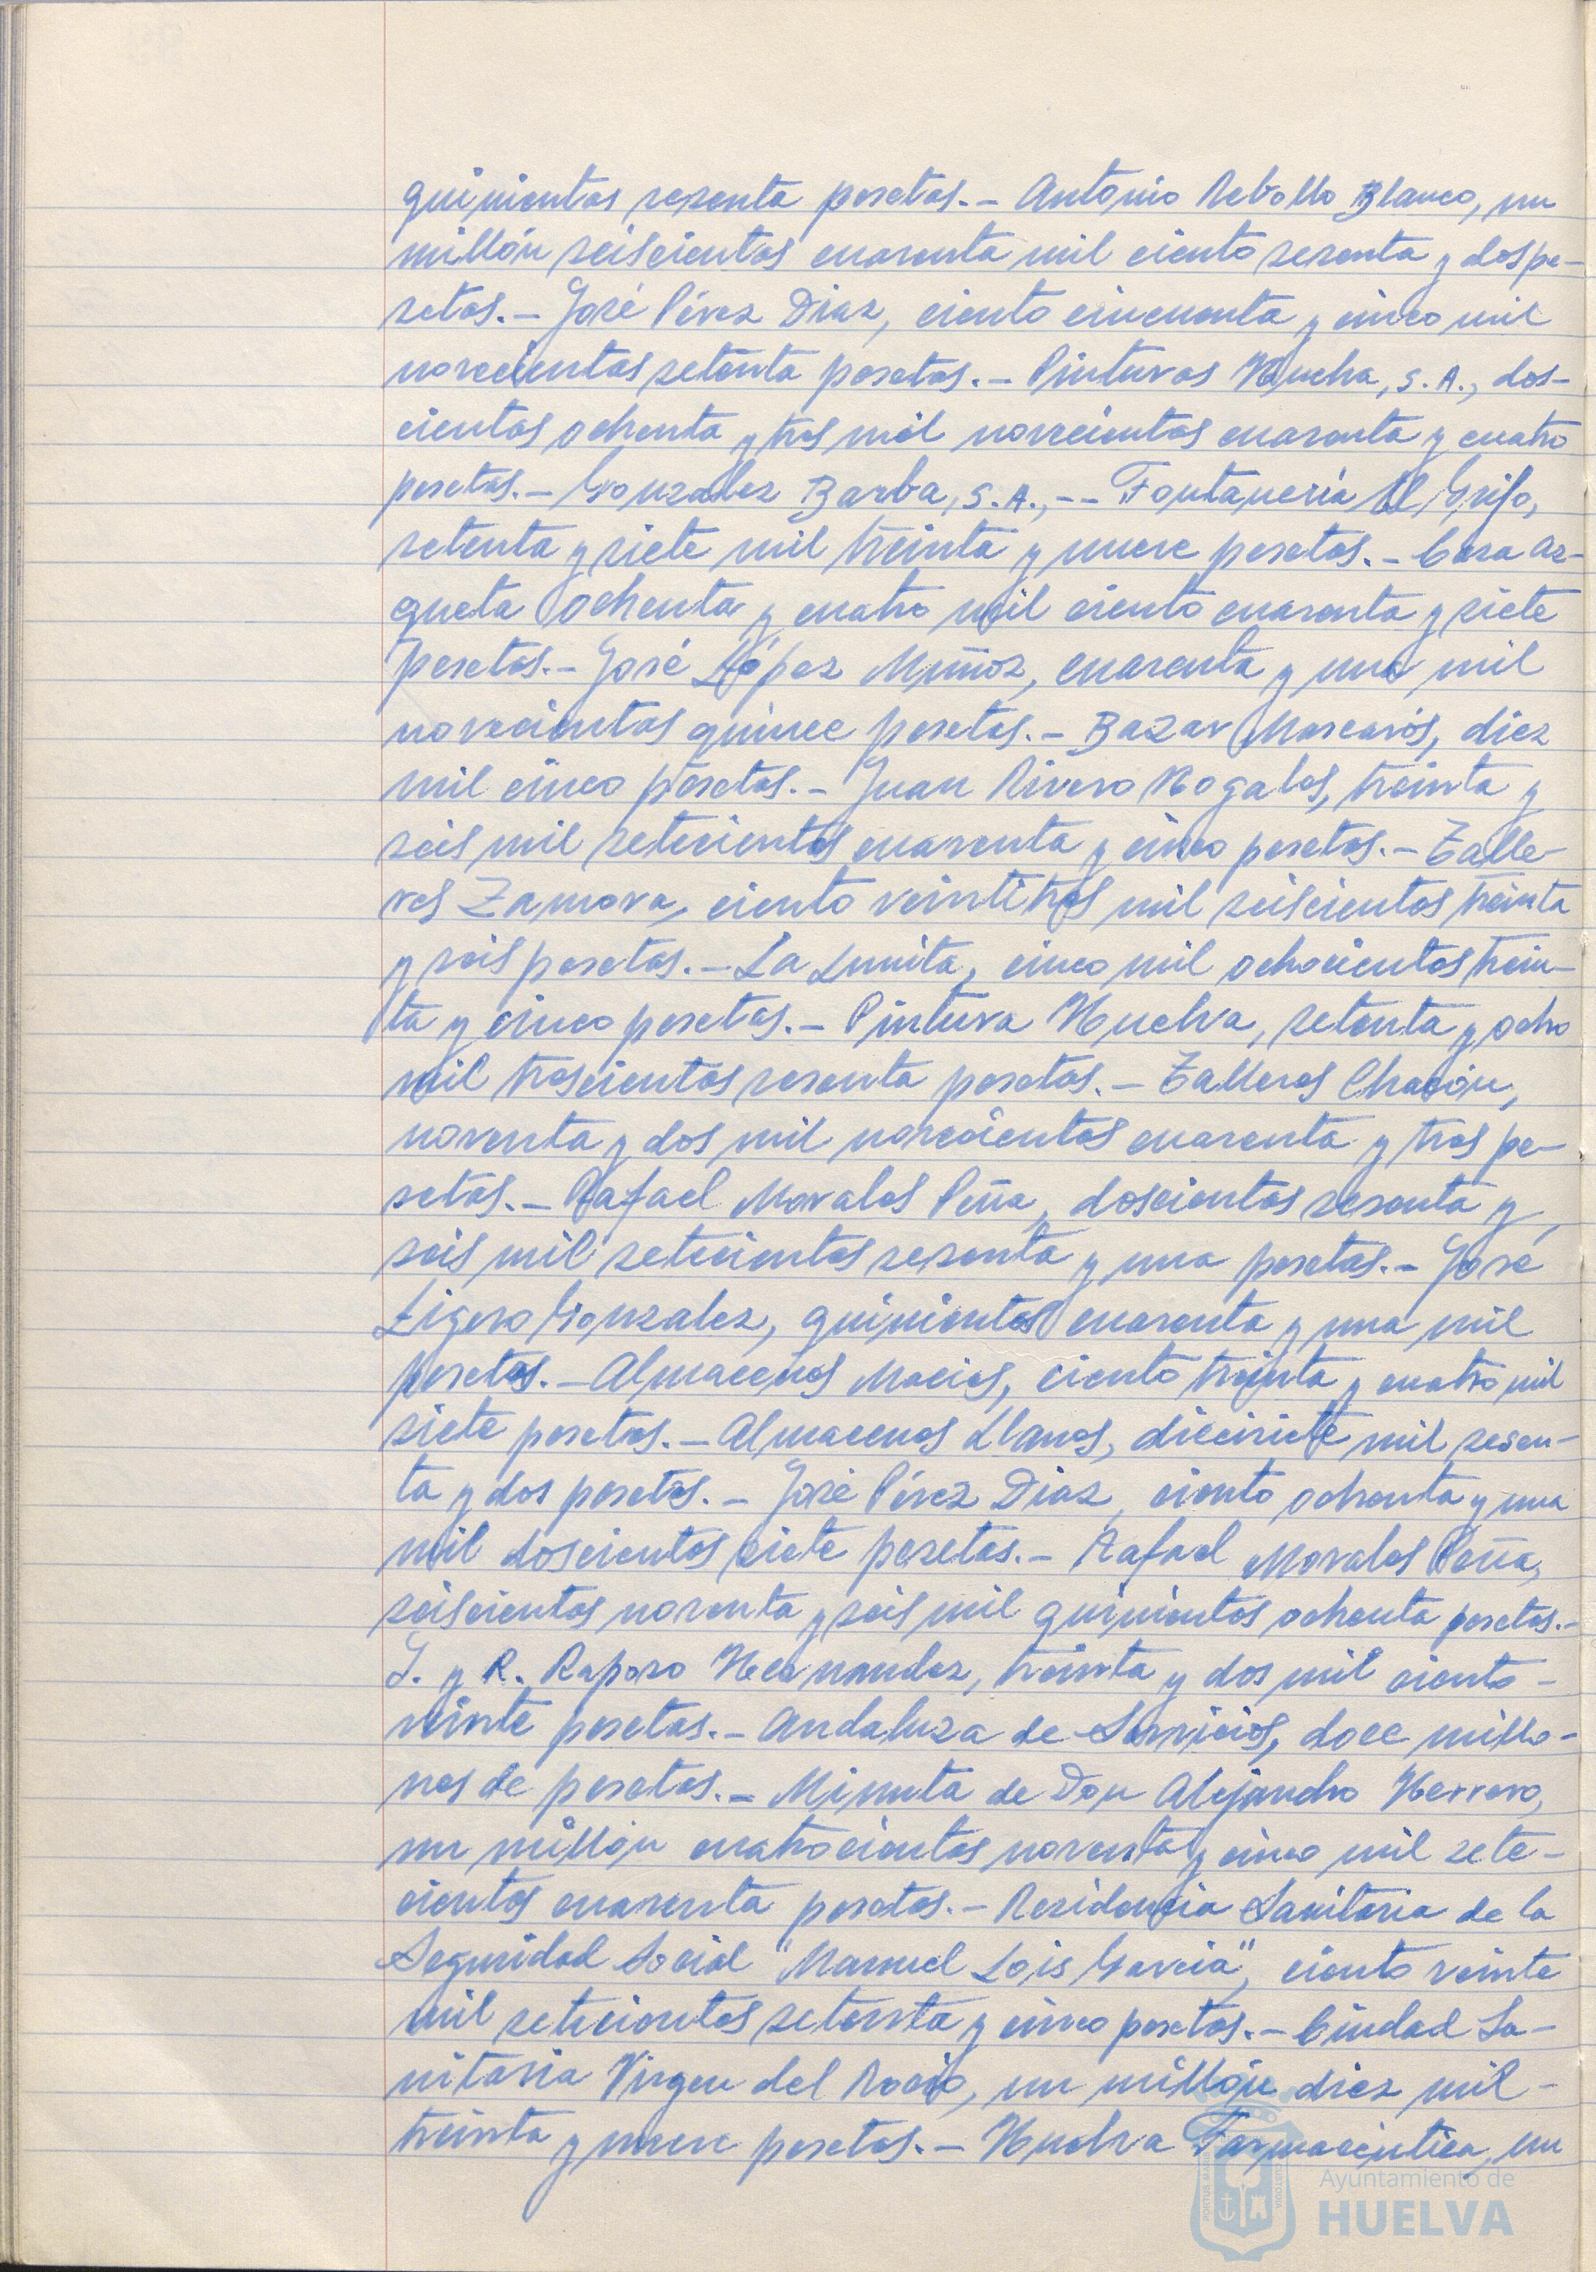 quinientas sesenta pesetas.- Antonio Rebollo Blanco, un
millón seiscientas cuarenta mil ciento sesenta y dos pe-
setas.- José Pérez Diaz, ciento cincuenta y cinco mil
novecientas setenta pesetas.- Pinturas Hucha, S.A., dos-
cientas ochenta y tres mil novecientas cuarenta y cuatro
pesetas.- Gonzalez Barba, S.A.,-- Fontanería El Grifo,
setenta y siete mil treinta y nueve pesetas.- Casa Az-
queta ochenta y cuatro mil ciento cuarenta y siete
pesetas.- José López Muñoz, cuarenta y una mil
novecientas quince pesetas.- Bazar Mascarós, diez
mil cinco pesetas.- Juan Rivero Nogales, treinta y
seis mil setecientas cuarenta y cinco pesetas.- Talle-
res Zamora, ciento veintitres mil seiscientas treinta
y seis pesetas.- La Lunita, cinco mil ochocientas trein-
ta y cinco pesetas.- Pintura Huelva, setenta y ocho
mil trescientas sesenta pesetas.- Talleres Chacón,
noventa y dos mil novecientas cuarenta y tres pe-
setas.- Rafael Morales Peña, doscientas sesenta y
seis mil setecientas sesenta y una pesetas.- José
Ligero Gonzalez, quinientas cuarenta y una mil
pesetas.- Almacenes Macias, ciento treinta y cuatro mil
siete pesetas.- Almacenes Llanos, diecisiete mil sesen-
ta y dos pesetas.- José Pérez Diaz, ciento ochenta y una
mil doscientas siete pesetas.- Rafael Morales Peña,
seiscientas noventa y seis mil quinientas ochenta pesetas.-
J. y R. Raposo Hernandez, treinta y dos mil ciento -
veinte pesetas.- Andaluza de Servicios, doce millo-
nes de pesetas.- Minuta de Don Alejandro Herrero,
un millón cuatrocientas noventa y cinco mil sete-
cientas cuarenta pesetas.- Residencia Sanitaria de la
Seguridad Social "Manuel Lois Garcia", ciento veinte
mil setecientas setenta y cinco pesetas.- Ciudad Sa-
nitaria Virgen del Rocío, un millón diez mil -
treinta y nueve pesetas.- Huelva Farmacéutica, un
Ayuntamiento de
HUELVA